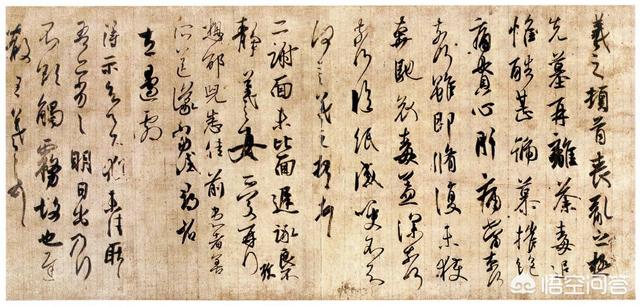 羲之頓首喪亂之極
先墓再離荼毒追
惟酷甚號慕摧絕
痛貫心肝痛當奈何
奈何雖即脩復未獲
奔馳哀毒益深奈何
奈何臨紙感哽不知
何言羲之頓首頓首
二謝面未比面遲詠良不
靜羲之女愛再拜
想邵兒悉佳前患者善
左邊劇
得示知足下猶未佳耿耿
吾亦劣劣明日出乃行
不欲觸霧故也遲
散王羲之頓首
悟空问答